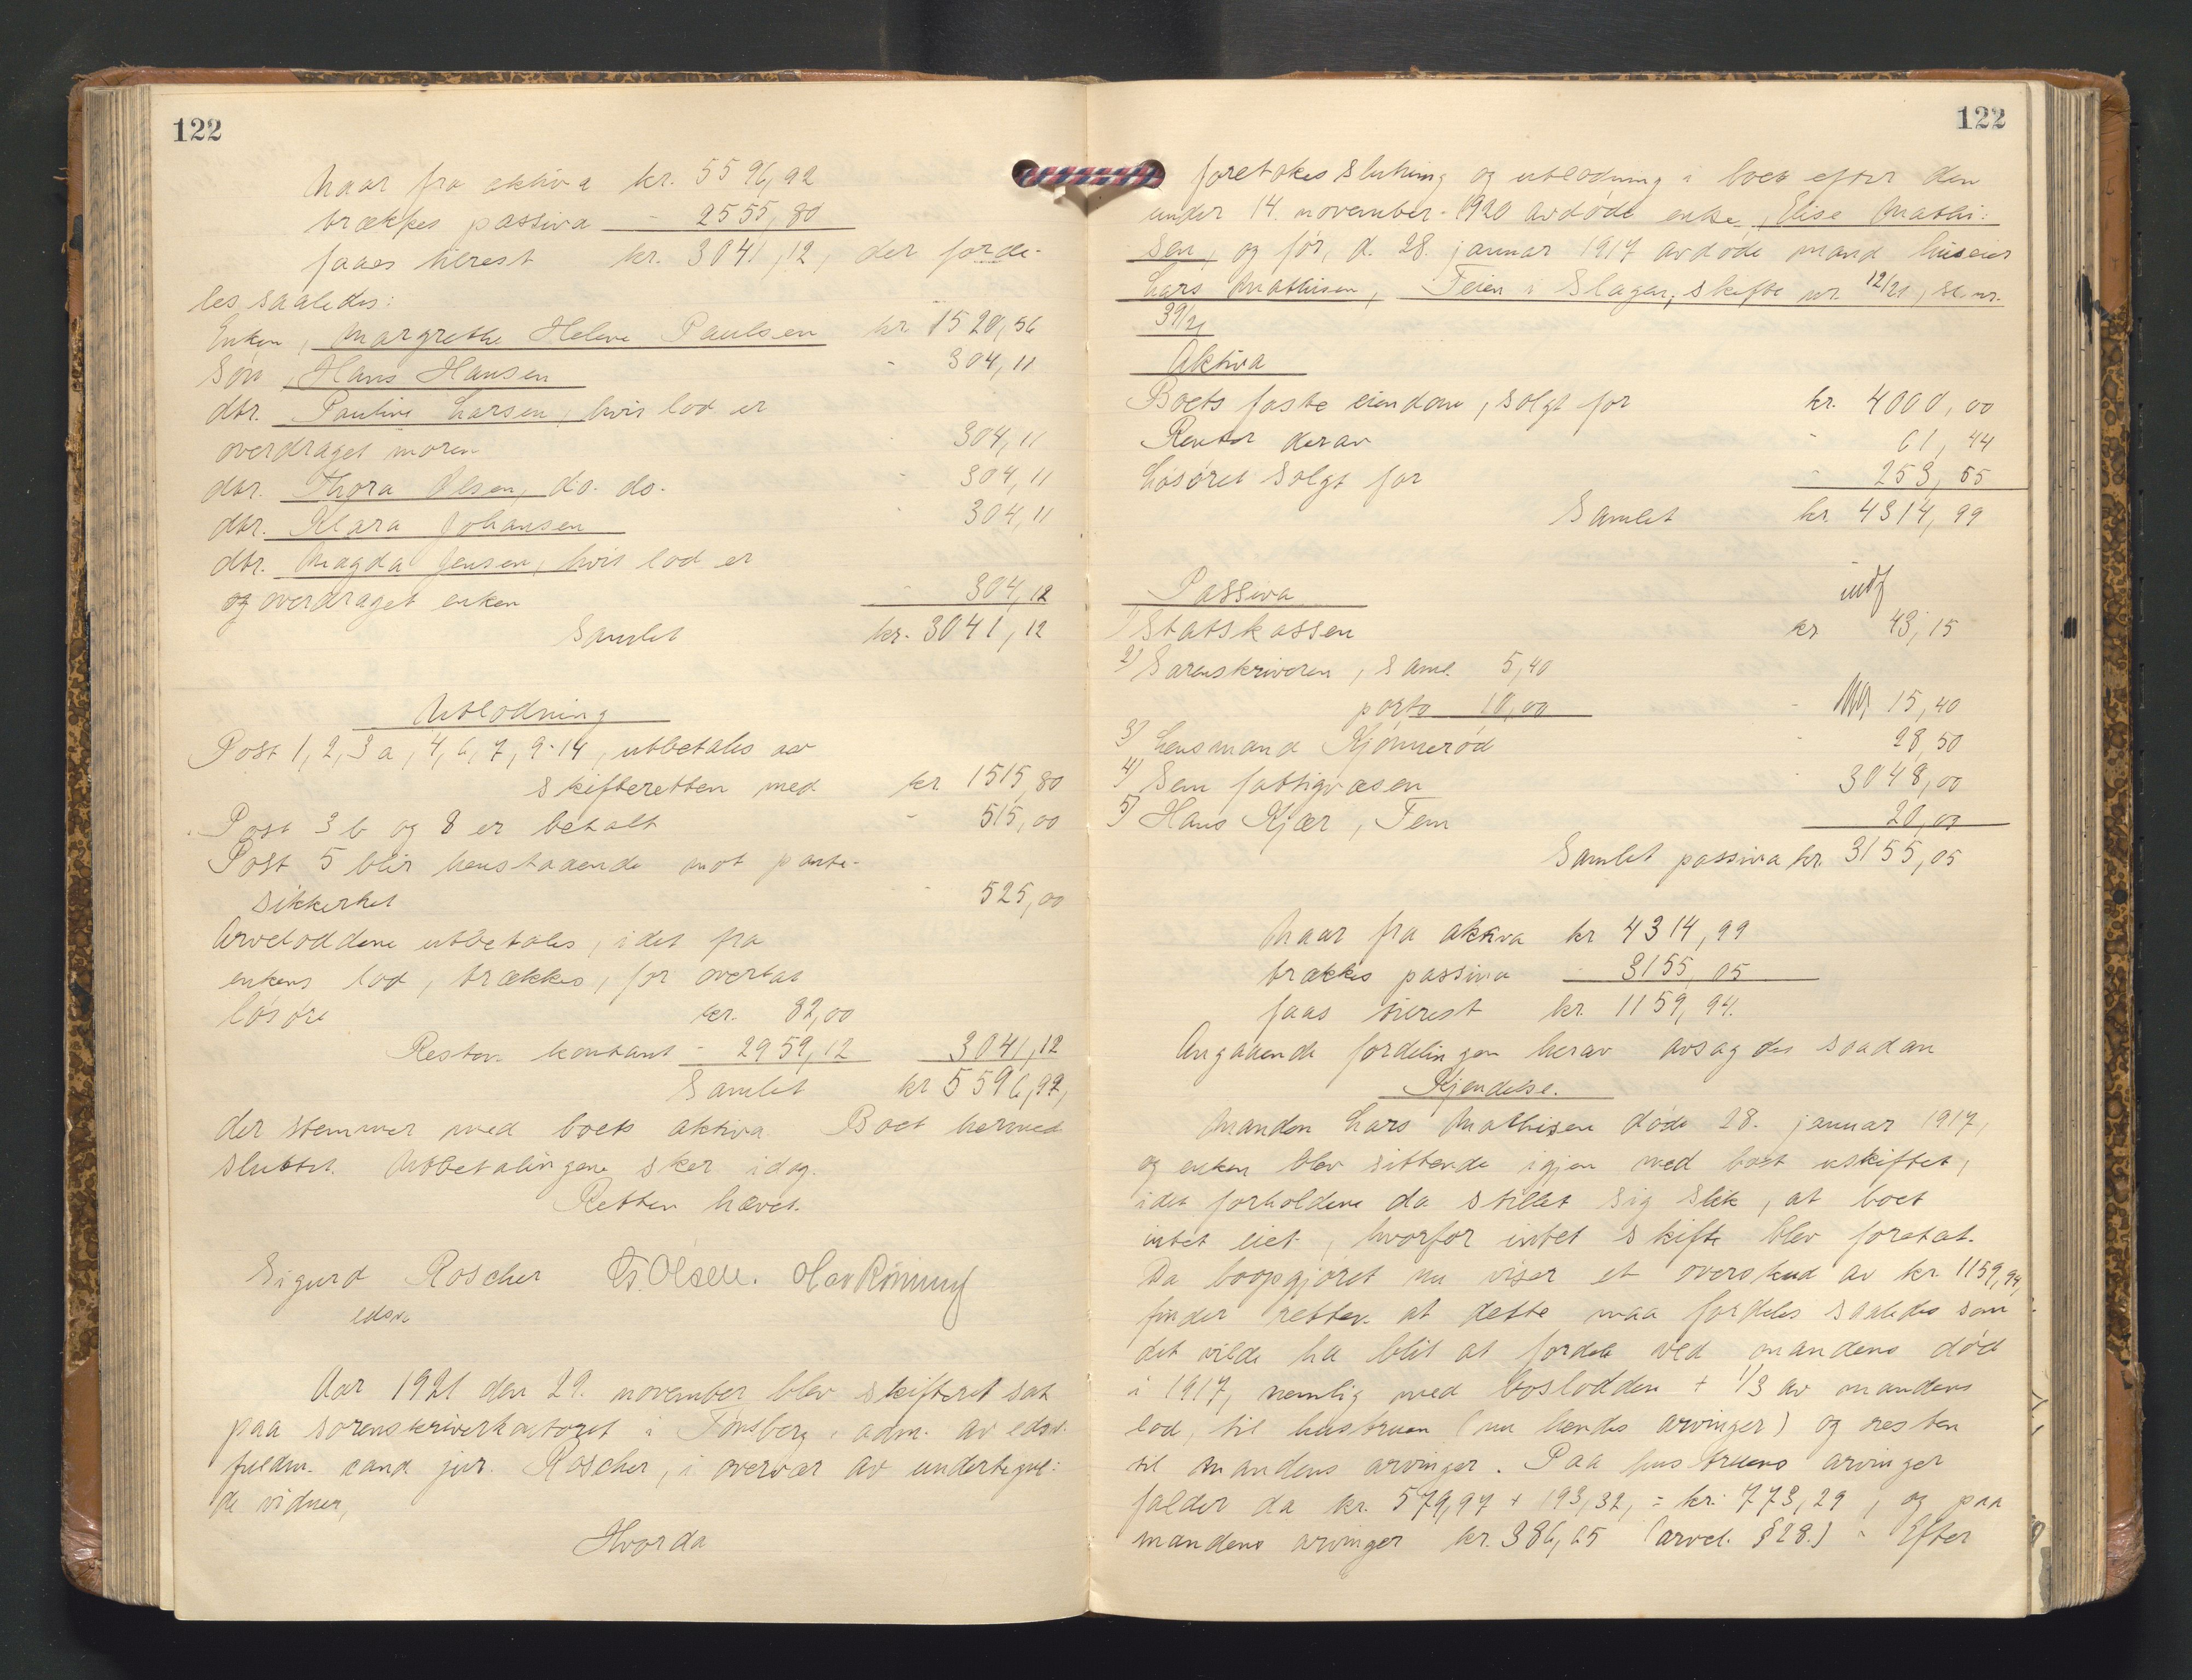 122
Naar fra aktiva kr. 5596,92
trækkes passiva - 2555,80
faaes tilrest kr. 3041,12, der forde-
les saaledes:
Enken, Margrethe Helene Paulsen kr 1520,56
Søn Hans Hansen - 304,11
dtr. Pauline Larsen, hvis lod er
overdraget moren - 304,11
dtr. Thora Olsen, do. do. - 304,11
dtr. Klara Johansen - 304,11
dtr. Magda Jensen, hvis lod er
og overdraget enken - 304,12
Samlet kr. 3041,12
Utlodning
Post 1, 2, 3a, 4, 6, 7, 9-14, utbetales av
skifteretten med kr 1515,80
Post 3b og 8 er betalt - 515,00
Post 5 blir henstaaende mot pante-
sikkerhet - 525,00
Arveloddene utbetales, idet fra
enkens lod, trækkes, for overtat
løsøre kr. 82,00
Resten kontant - 2959,12 3041,12
Samlet kr 5596,92,
der stemmer med boets aktiva. Boet hermed
sluttet. Utbetalingene sker idag.
Retten hævet.
Sigurd Roscher Olsen. Olav Rønning
edsv.
Aar 1921 den 29. november blev skifteret sat
paa sorenskriverkontoret i Tønsberg, adm. av edsv.
fuldm. cand. jur. Roscher, i overvær av undertegne:
de vidner,
Hvorda
122
foretokes slutning og utlodning i boet efter den
under 14. november 1920 avdøde enke, Elise Mathi:
sen, og før, d. 28. januar 1917 avdøde mand huseier
Lars Mathisen, Teien i Slagen, skifte nr. 12/21, sl.nr.
39/21
Aktiva
Boets faste eiendom, solgt for kr. 4000,00
Renter derav - 61,44
Løsøret solgt for - 253,55
Samlet kr. 4314,99
Passiva
1) Statskassen kr 43,15
2) Sorenskriveren, saml. 5,40
porto 10,00 - 15,40
3) Lensmand Kjønnerød - 28,50
4) Sem fattigvæsen - 3048,00
5) Hans Kjær, Tem 20,00
Samlet passiva kr. 3155,05
Naar fra aktiva kr 4314,99
trækkes passiva - 3155,05
faas tilrest kr. 1159,94.
Angaaende fordelingen herav avsagdes saadan
Kjendelse.
Manden Lars Mathisen døde 28. januar 1917,
og enken blev sittende igjen med boet uskiftet,
idet forholdene da stillet sig slik, at boet
intet eiet, hvorfor intet skifte blev foretat.
Da boopgjøret nu viser et overskud av kr. 1159,94,
finder retten at dette maa fordeles saaledes som
det vilde ha blit at fordele ved mandens død
i 1917, nemlig med boslodden + 1/3 av mandens
lod, til hustruen (nu hendes arvinger) og resten
til mandens arvinger. Paa hustruens arvinger
falder da kr. 579,97 + 193,32, = kr. 773,29, og paa
mandens arvinger kr. 386,65 (arvel. § 28.) - Efter